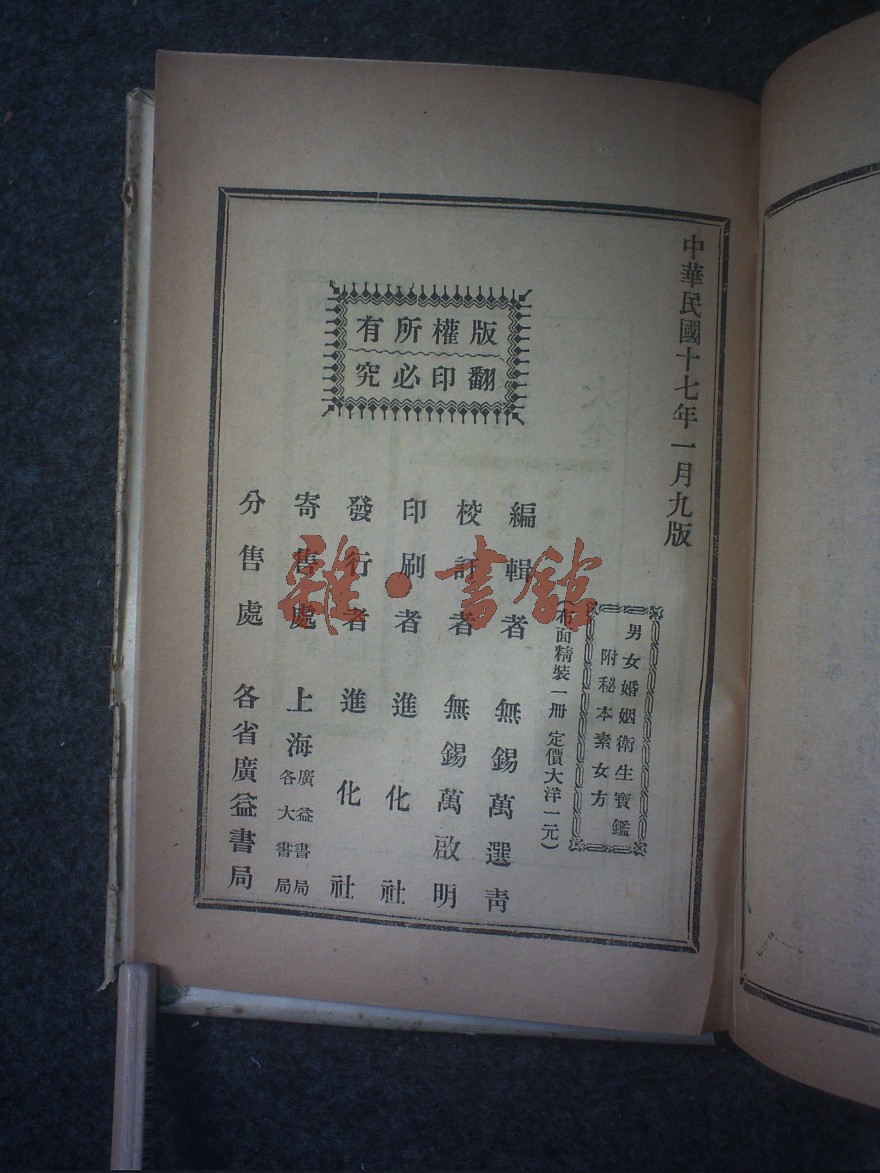 中華民國十七年一月九版
男女婚姻衛生寶鑑
附秘本素女方
(布面精裝一册 定價大洋一元)
編輯者 無錫萬選青
校訂者 無錫萬啟明
印刷者 進化社
發行者 進化社
寄售處 上海廣益書局各大書局
分售處 各省廣益書局
版權所有
翻印必究
雜·書館